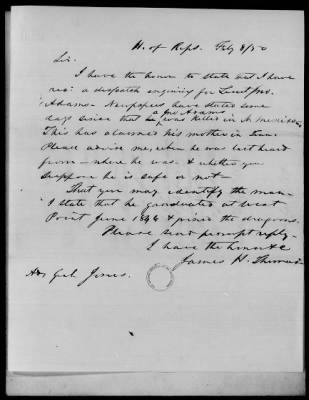 H. of Reps. Feby 8/50
Sir.
I have the honor to state that I have
recd a despatch enquiring for Lieut Jno.
Adams. Newspapers have stated some
a Jno Adams
days since that he was killed in N. Mexico
This has alarmed his mother in Ten.
Please advise me, when he was last heard
from - where he was - & whether you
suppose he is safe or not -
That you may identify the man -
I state that he graduated at West
Point June 1846 & joined the dragoons.
Please send prompt reply -
I have the honor &c
James H. Thomas
Adj Genl Jones.